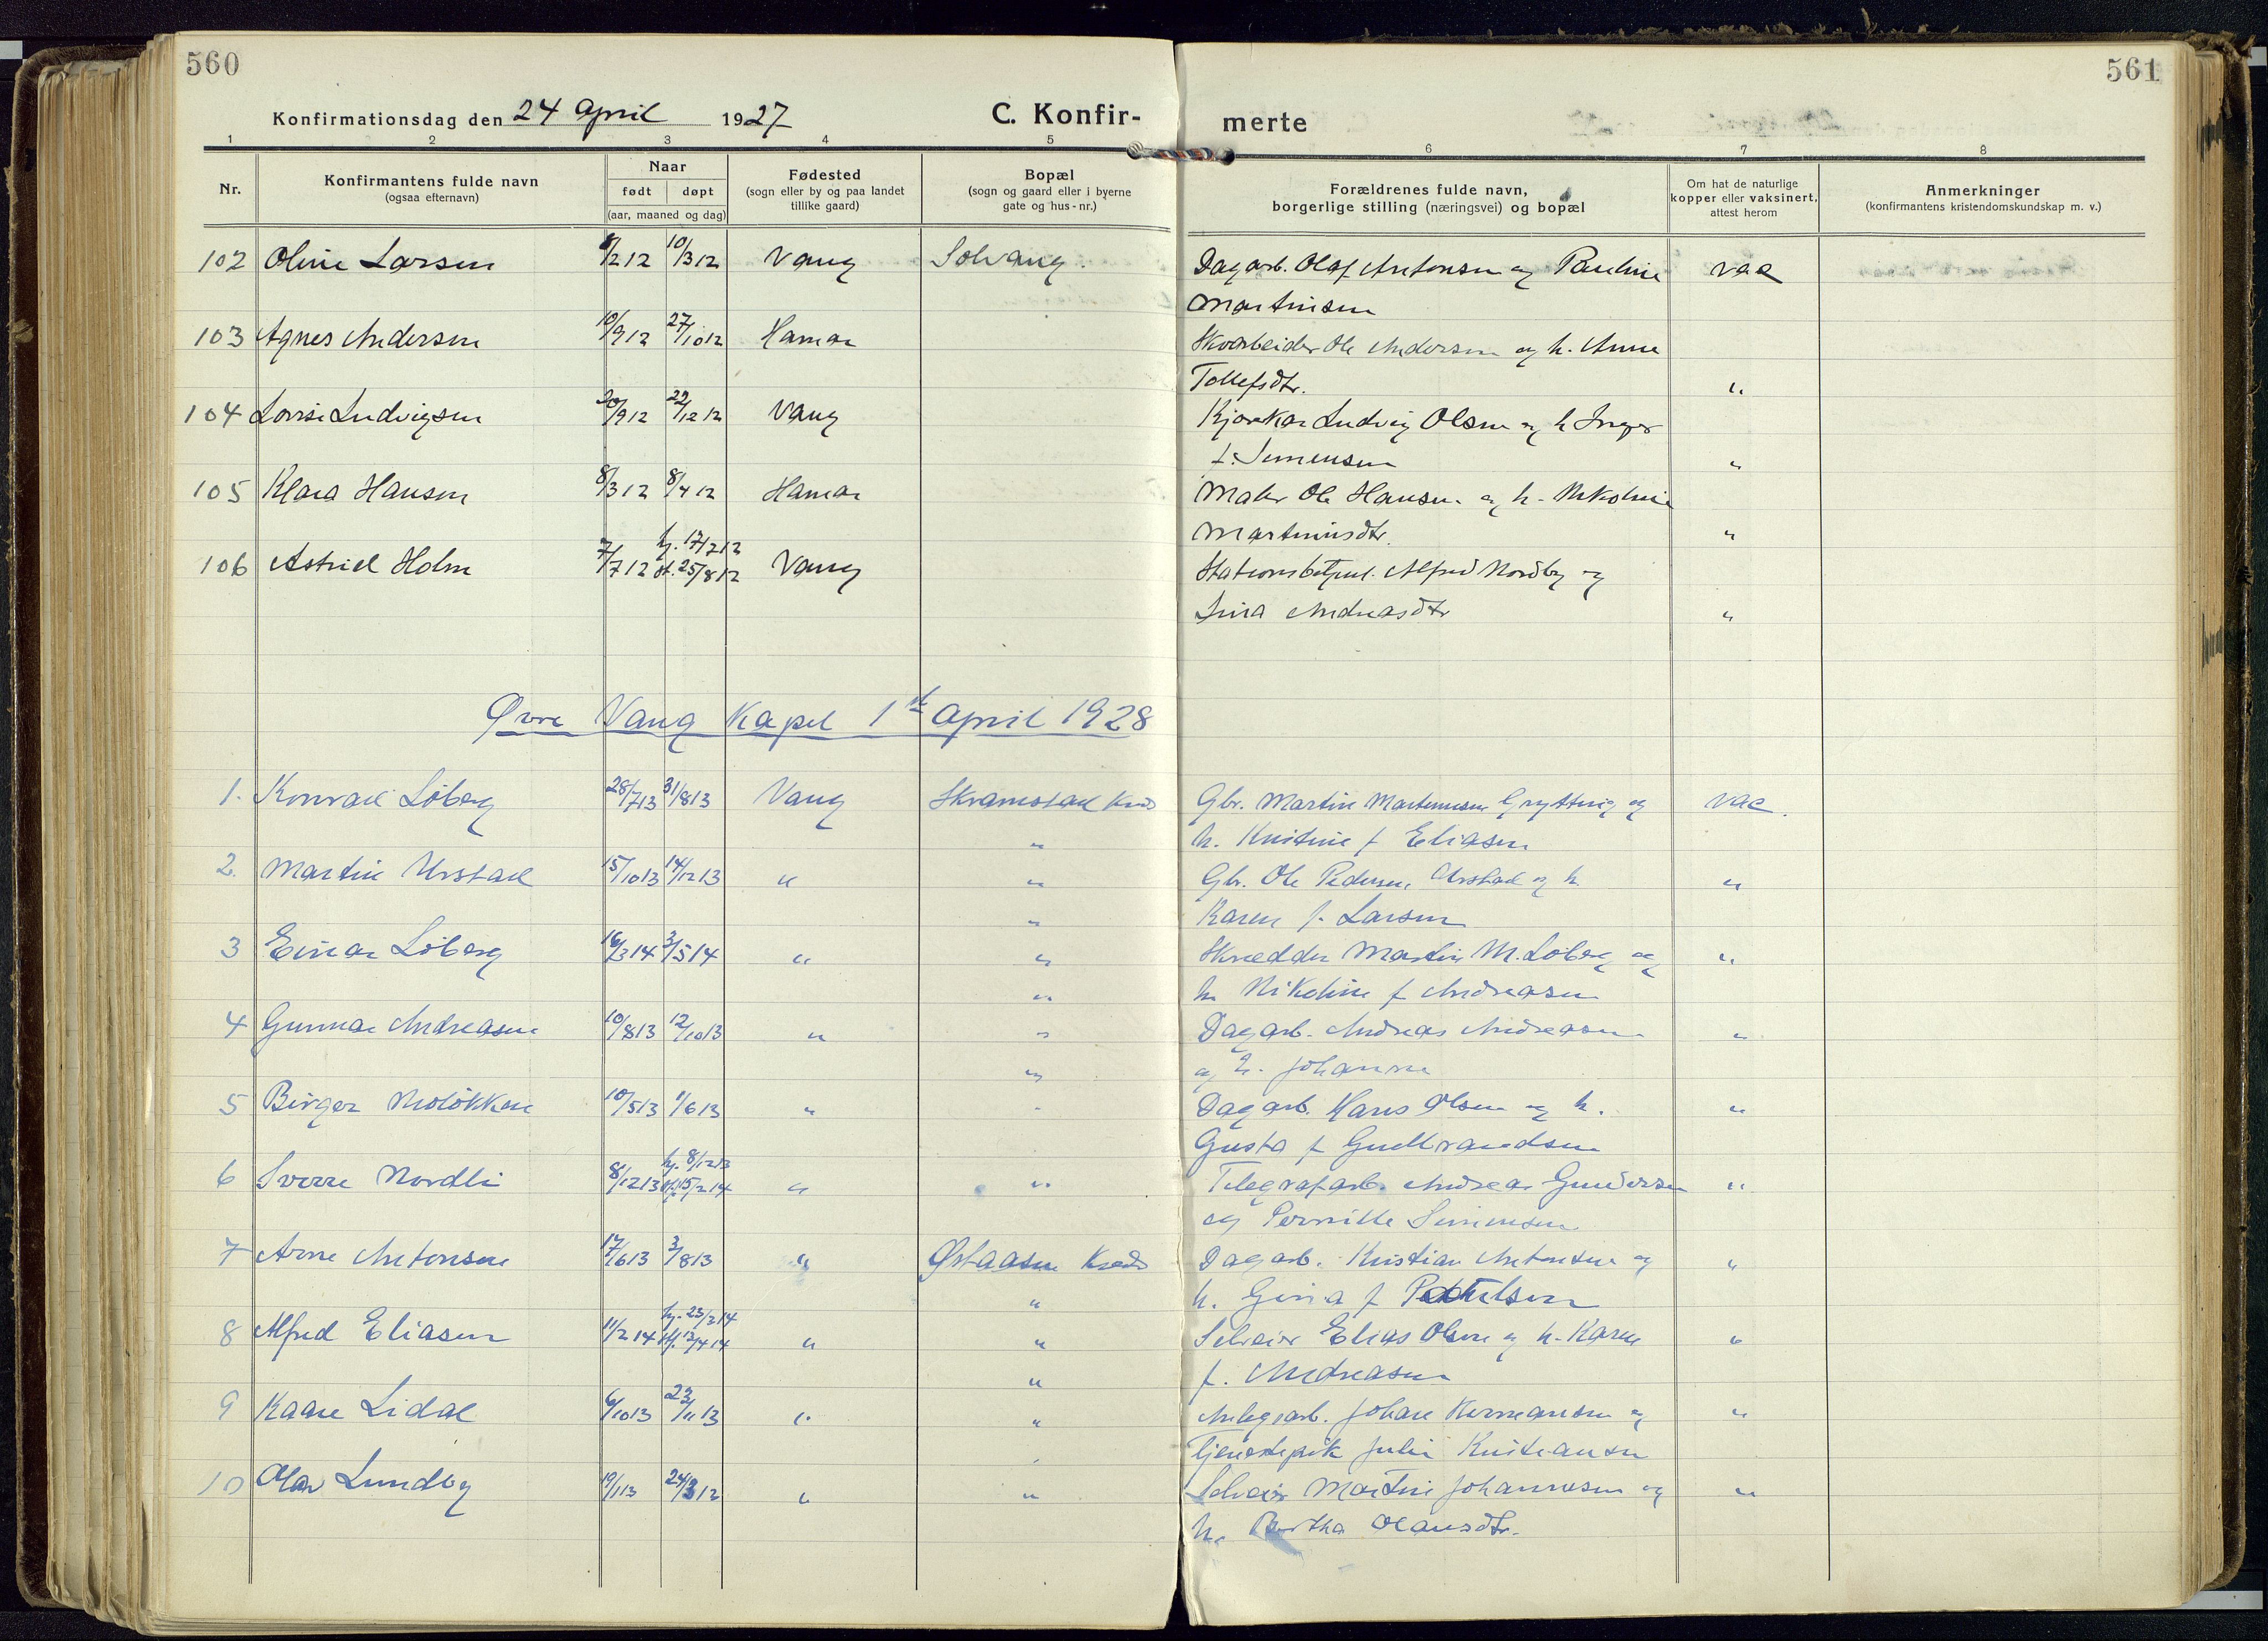 560
561
Konfirmationsdag den 24 april 1927
C. Konfir-
merte
1 2 3 4 5 6 7 8
Nr.
Konfirmantens fulde navn
(ogsaa efternavn)
Naar
født døpt
(aar, maaned og dag)
Fødested
(sogn eller by og paa landet
tillike gaard)
Bopæl
(sogn og gaard eller i byerne
gate og hus-nr.)
Forældrenes fulde navn,
borgerlige stilling (næringsvei) og bopæl
Om hat de naturlige
kopper eller vaksinert,
attest herom
Anmerkninger
(konfirmantens kristendomskundskap m. v.)
102 Oline Larsen 8/2 12 10/3 12 Vang Solvang. Dagarb. Olaf Antonsen og Pauline vac
Martinsen
103 Agnes Andersen 10/9 12 27/10 12 Hamar Skoarbeider Ole Andersen og h. Anne
Tollefsdtr. "
104 Lovise Ludvigsen 20/9 12 22/12 12 Vang Kjørekar Ludvig Olsen og h Inger
f. Simensen "
105 Klara Hansen 8/3 12 8/4 12 Hamar Maler Ole Hansen og h. Nikoline
Martinusdtr. "
106 Astrid Holm 7/7 12 hj. 17/7 12 st. 25/8 12 Vang Stationsbetjent. Alfred Nordby og
Lina Andreasdtr "
Øvre Vang Kapel 1st april 1928
1. Konrad Löberg 28/7 13 31/8 13 Vang Skramstad Kreds Gbr. Martin Martinusen Grytting og vac.
" h. Kristine f Eliasen
2. Martin Urstad 15/10 13 14/12 13 " " Gbr. Ole Pedersen Urstad og h. "
" Karen f. Larsen
3 Einar Löberg 16/3 14 3/5 14 " " Skredder Martin M. Löberg og "
" h. Nikoline f Andreasen
4 Gunnar Andreasen 10/8 13 12/10 13 " " Dagarb. Andreas Andreasen "
" og h. Johanne
5 Birger Molökken 10/5 13 1/6 13 " " Dagarb. Hans Olsen og h. "
Gusta f Gudbrandsen
6 Sverre Nordli 8/12 13 hj. 8/12 13 st. 15/2 14 " " Telegrafarb. Andreas Gundersen "
og Pernille Simensen
7 Arne Antonsen 17/6 13 3/8 13 " Østaasen Kreds Dagarb. Kristian Antonsen og "
" h. Gina f
8 Alfred Eliasen 11/2 14 hj. 23/2 14 st. 13/4 14 " " Sveiser Elias Olsen og h. Karen "
" f. Andreasen
9 Kaare Lidal 6/10 13 23/11 13 " " Anlegsarb. Johan Hermansen og "
Tjenestepik Julie Kristiansen
10 Olav Lundby 19/1 13 24/3 12 " " Sveiser Martin Johannesen og "
h. Bertha Olausdtr.